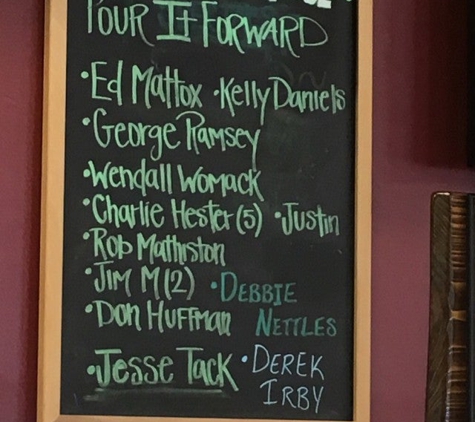 POUR IT FORWARD
•Ed Mattox •Kelly Daniels
•George Ramsey
•Wendall Womack
•Charlie Hester (5) •Justin
•Rob Mathiston
•JIM M (2) •DEBBIE
•DON HUFFMAN NETTLES
•Jesse Tack •DEREK
IRBY